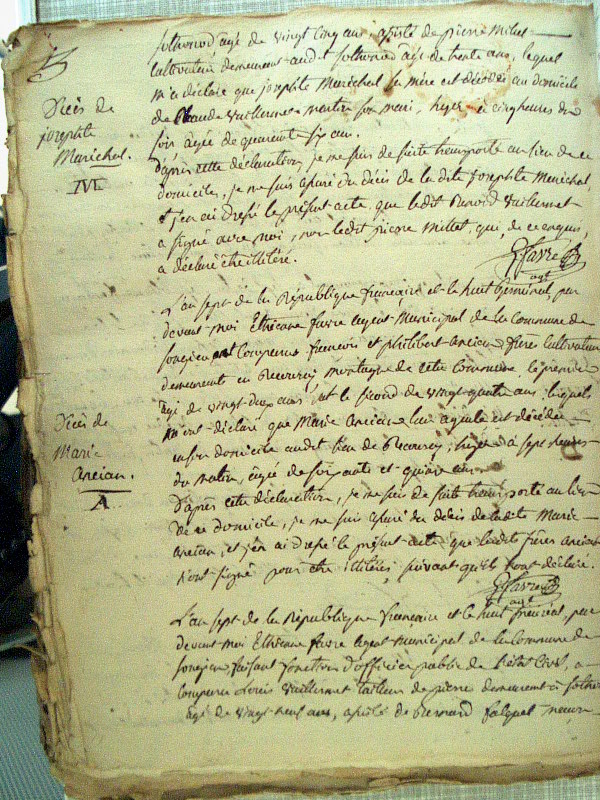 Sothonod agé de vingt cinq ans assisté de pierre Millet
cultivateur demeurant audit Sothonod agé de trente ans, lequel
m'a déclaré que josephte Maréchal sa mère est décédée au domicile
de Claude Vuillermet Martin son mari, hyer à cinq heures du
soir agée de quarente six ans.
D'après cette déclaration, je me suis de suite transporté au lieu de ce
domicile, je me suis assuré du décès de la dite Josephte Maréchal,
et j'en ai dressé le présent acte que ledit Vuillermet
a signé avec moi, non ledit pierre Millet qui, de ce enquis,
a déclaré être illitéré.
Favre
agt
Décès de
josephte
Maréchal.
IVL
L'an sept de la République française et le huit Germinal, par
devant moi Ethienne favre agent Municipal de la Commune de
Songieu ont comparus françois et philibert Ancian frères cultivateurs
demeurant en montagne de cette Commune le premier
agé de vingt deux ans et le second de vingt quatre ans; lesquels
m'ont déclaré que Marie Ancian leur est décédée
en son domicile audit lieu de hyer à sept heures
du matin, agée de soixante et quinze ans
D'après cette déclaration, je me suis de suite transporté au lieu
de ce domicile, je me suis assuré du décès de ladite Marie
Ancian, et j'en ai dressé le présent acte que lesdits frères Ancian
n'ont signé pour être illitérés, suivant qu'ils l'ont déclaré.
Favre
agt
Décès de
Marie
Ancian.
A
L'an sept de la République française et le huit floréal, par
devant moi Ethienne favre agent municipal de la Commune de
Songieu faisant fonctions d'officier public de l'état Civil, a
comparu Louis Vuillermet tailleur de pierre demeurant à Sotho
agé de vingt neuf ans, assisté de Bernard falquet